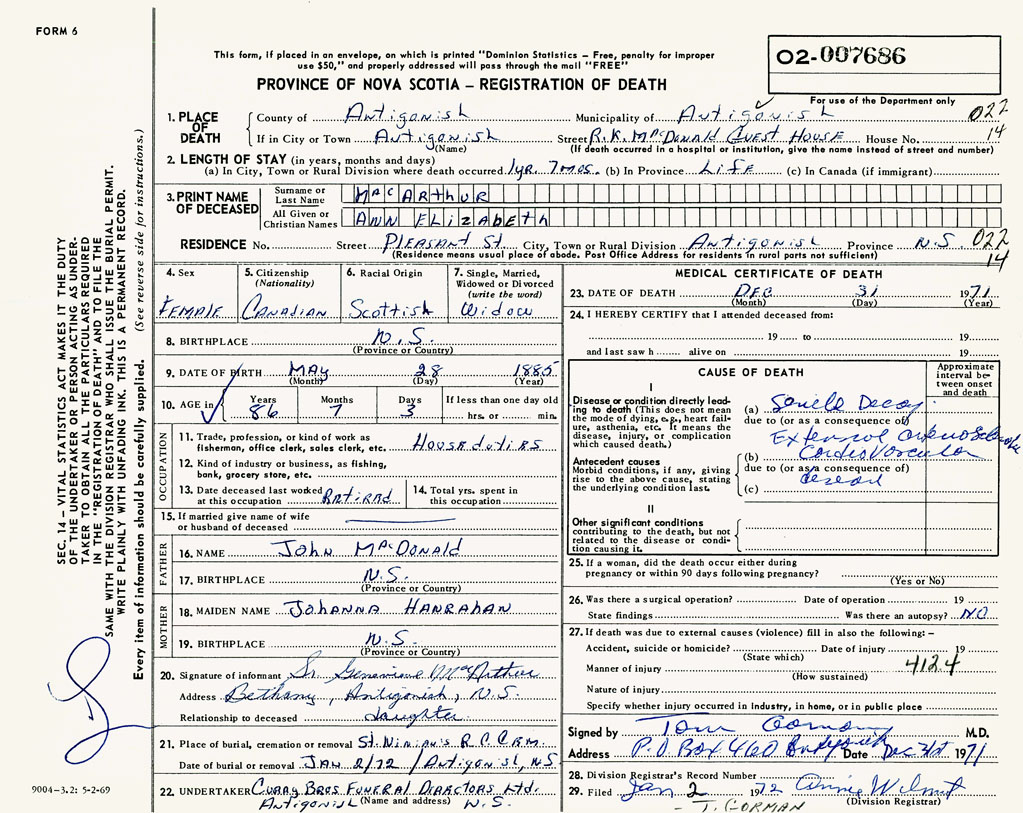 FORM 6
This form, if placed in an envelope, on which is printed "Dominion Statistics – Free, penalty for improper
use $50," and properly addressed will pass through the mail "FREE"
PROVINCE OF NOVA SCOTIA – REGISTRATION OF DEATH
02-007686
For use of the Department only
1. PLACE OF DEATH
County of Antigonish Municipality of Antigonish 022
If in City or Town Antigonish Street R.K. MacDonald Guest House House No. 14
(Name) (If death occurred in a hospital or institution, give the name instead of street and number)
2. LENGTH OF STAY (in years, months and days)
(a) In City, Town or Rural Division where death occurred 1yr. 7mos. (b) In Province Life (c) In Canada (if immigrant)
3. PRINT NAME OF DECEASED
Surname or Last Name MacArthur
All Given or Christian Names Ann Elizabeth
RESIDENCE No. Street Pleasant St. City, Town or Rural Division Antigonish Province N.S. 022
(Residence means usual place of abode. Post Office Address for residents in rural parts not sufficient) 14
4. Sex
Female
5. Citizenship
(Nationality)
Canadian
6. Racial Origin
Scottish
7. Single, Married,
Widowed or Divorced
(write the word)
Widow
8. BIRTHPLACE N.S.
(Province or Country)
9. DATE OF BIRTH May 28 1885
(Month) (Day) (Year)
10. AGE in
Years Months Days If less than one day old
86 7 3 hrs. or min.
OCCUPATION
11. Trade, profession, or kind of work as
fisherman, office clerk, sales clerk, etc. House duties
12. Kind of industry or business, as fishing,
bank, grocery store, etc.
13. Date deceased last worked
at this occupation Retired
14. Total yrs. spent in
this occupation
15. If married give name of wife
or husband of deceased
FATHER
16. NAME John MacDonald
17. BIRTHPLACE N.S.
(Province or Country)
MOTHER
18. MAIDEN NAME Johanna Hanrahan
19. BIRTHPLACE N.S.
(Province or Country)
20. Signature of informant Sr. Genevieve MacArthur
Address Bethany, Antigonish, N.S.
Relationship to deceased daughter
21. Place of burial, cremation or removal St. Ninian's R C Cem.
Date of burial or removal Jan 2/72 / Antigonish, NS
22. UNDERTAKER Curry Bros Funeral Directors Ltd.
(Name and address)
Antigonish N.S.
MEDICAL CERTIFICATE OF DEATH
23. DATE OF DEATH Dec 31 1971
(Month) (Day) (Year)
24. I HEREBY CERTIFY that I attended deceased from:
19 to 19
and last saw h alive on 19
CAUSE OF DEATH
Approximate
interval be-
tween onset
and death
I
Disease or condition directly lead-
ing to death (This does not mean
the mode of dying, e.g., heart fail-
ure, asthenia, etc. It means the
disease, injury, or complication
which caused death.)
(a) Senile Decay
due to (or as a consequence of)
Antecedent causes
Morbid conditions, if any, giving
rise to the above cause, stating
the underlying condition last.
(b) Cardiovascular
due to (or as a consequence of)
(c)
II
Other significant conditions
contributing to the death, but not
related to the disease or condi-
tion causing it.
25. If a woman, did the death occur either during
pregnancy or within 90 days following pregnancy?
(Yes or No)
26. Was there a surgical operation? Date of operation 19
State findings Was there an autopsy? No
27. If death was due to external causes (violence) fill in also the following: –
Accident, suicide or homicide? Date of injury 19
(State which)
Manner of injury 4124
(How sustained)
Nature of injury
Specify whether injury occurred in industry, in home, or in public place
Signed by Tom Gorman M.D.
Address P.O Box 460 Antigonish Date Dec 31st 1971
28. Division Registrar's Record Number
29. Filed Jan 2 1972 Annie Wilmot
(Division Registrar)
- T. GORMAN
SEC. 14 – VITAL STATISTICS ACT MAKES IT THE DUTY
OF THE UNDERTAKER OR PERSON ACTING AS UNDER-
TAKER TO OBTAIN ALL THE PARTICULARS REQUIRED
IN THE "REGISTRATION OF DEATH" AND TO FILE THE
SAME WITH THE DIVISION REGISTRAR WHO SHALL ISSUE THE BURIAL PERMIT.
WRITE PLAINLY WITH UNFADING INK. THIS IS A PERMANENT RECORD.
Every item of information should be carefully supplied. (See reverse side for instructions.)
9004–3.2: 5-2-69